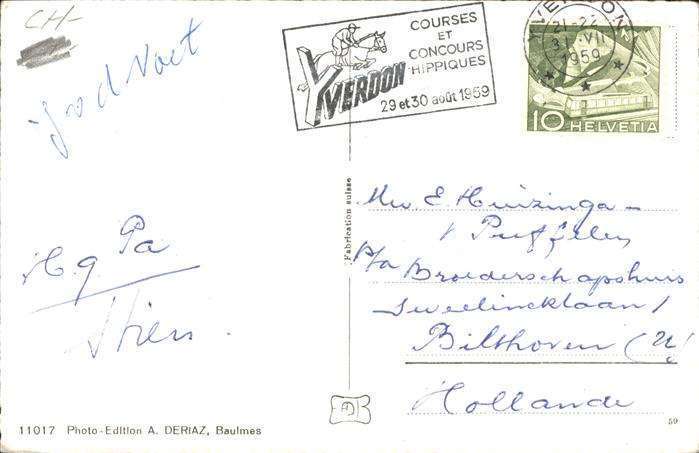 CH-
COURSES
ET
CONCOURS
HIPPIQUES
YVERDON
29 et 30 août 1959
YVERDON
21-22
VII
1959
10 HELVETIA
Pa
Stien.
Fabrication suisse
Mw E Huizinga-
v Puffelen
p/a Broederschapshuis
Sweelincklaan 1
Bilthoven (U)
Hollande
11017 Photo-Edition A. DERIAZ, Baulmes
59